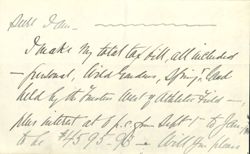 Dear Sam
I make my total tax bill, all included
— personal, Wild Gardens, Spring, and
held by the Trustees West of Athletic Field —
plus interest at 6 p.c. from Sept 1 to Jan
to be $4595.98 — Will you please